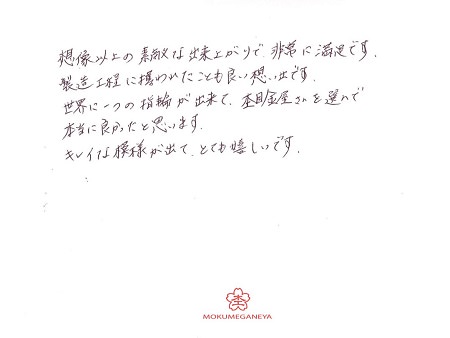 想像以上の素敵な出来上がりで、非常に満足です。
製造工程に携われたことも良い想い出です。
世界に一つの指輪が出来て、杢目金屋さんを選んで
本当に良かったと思います。
キレイな模様が出て、とても嬉しいです。
杢
MOKUMEGANEYA